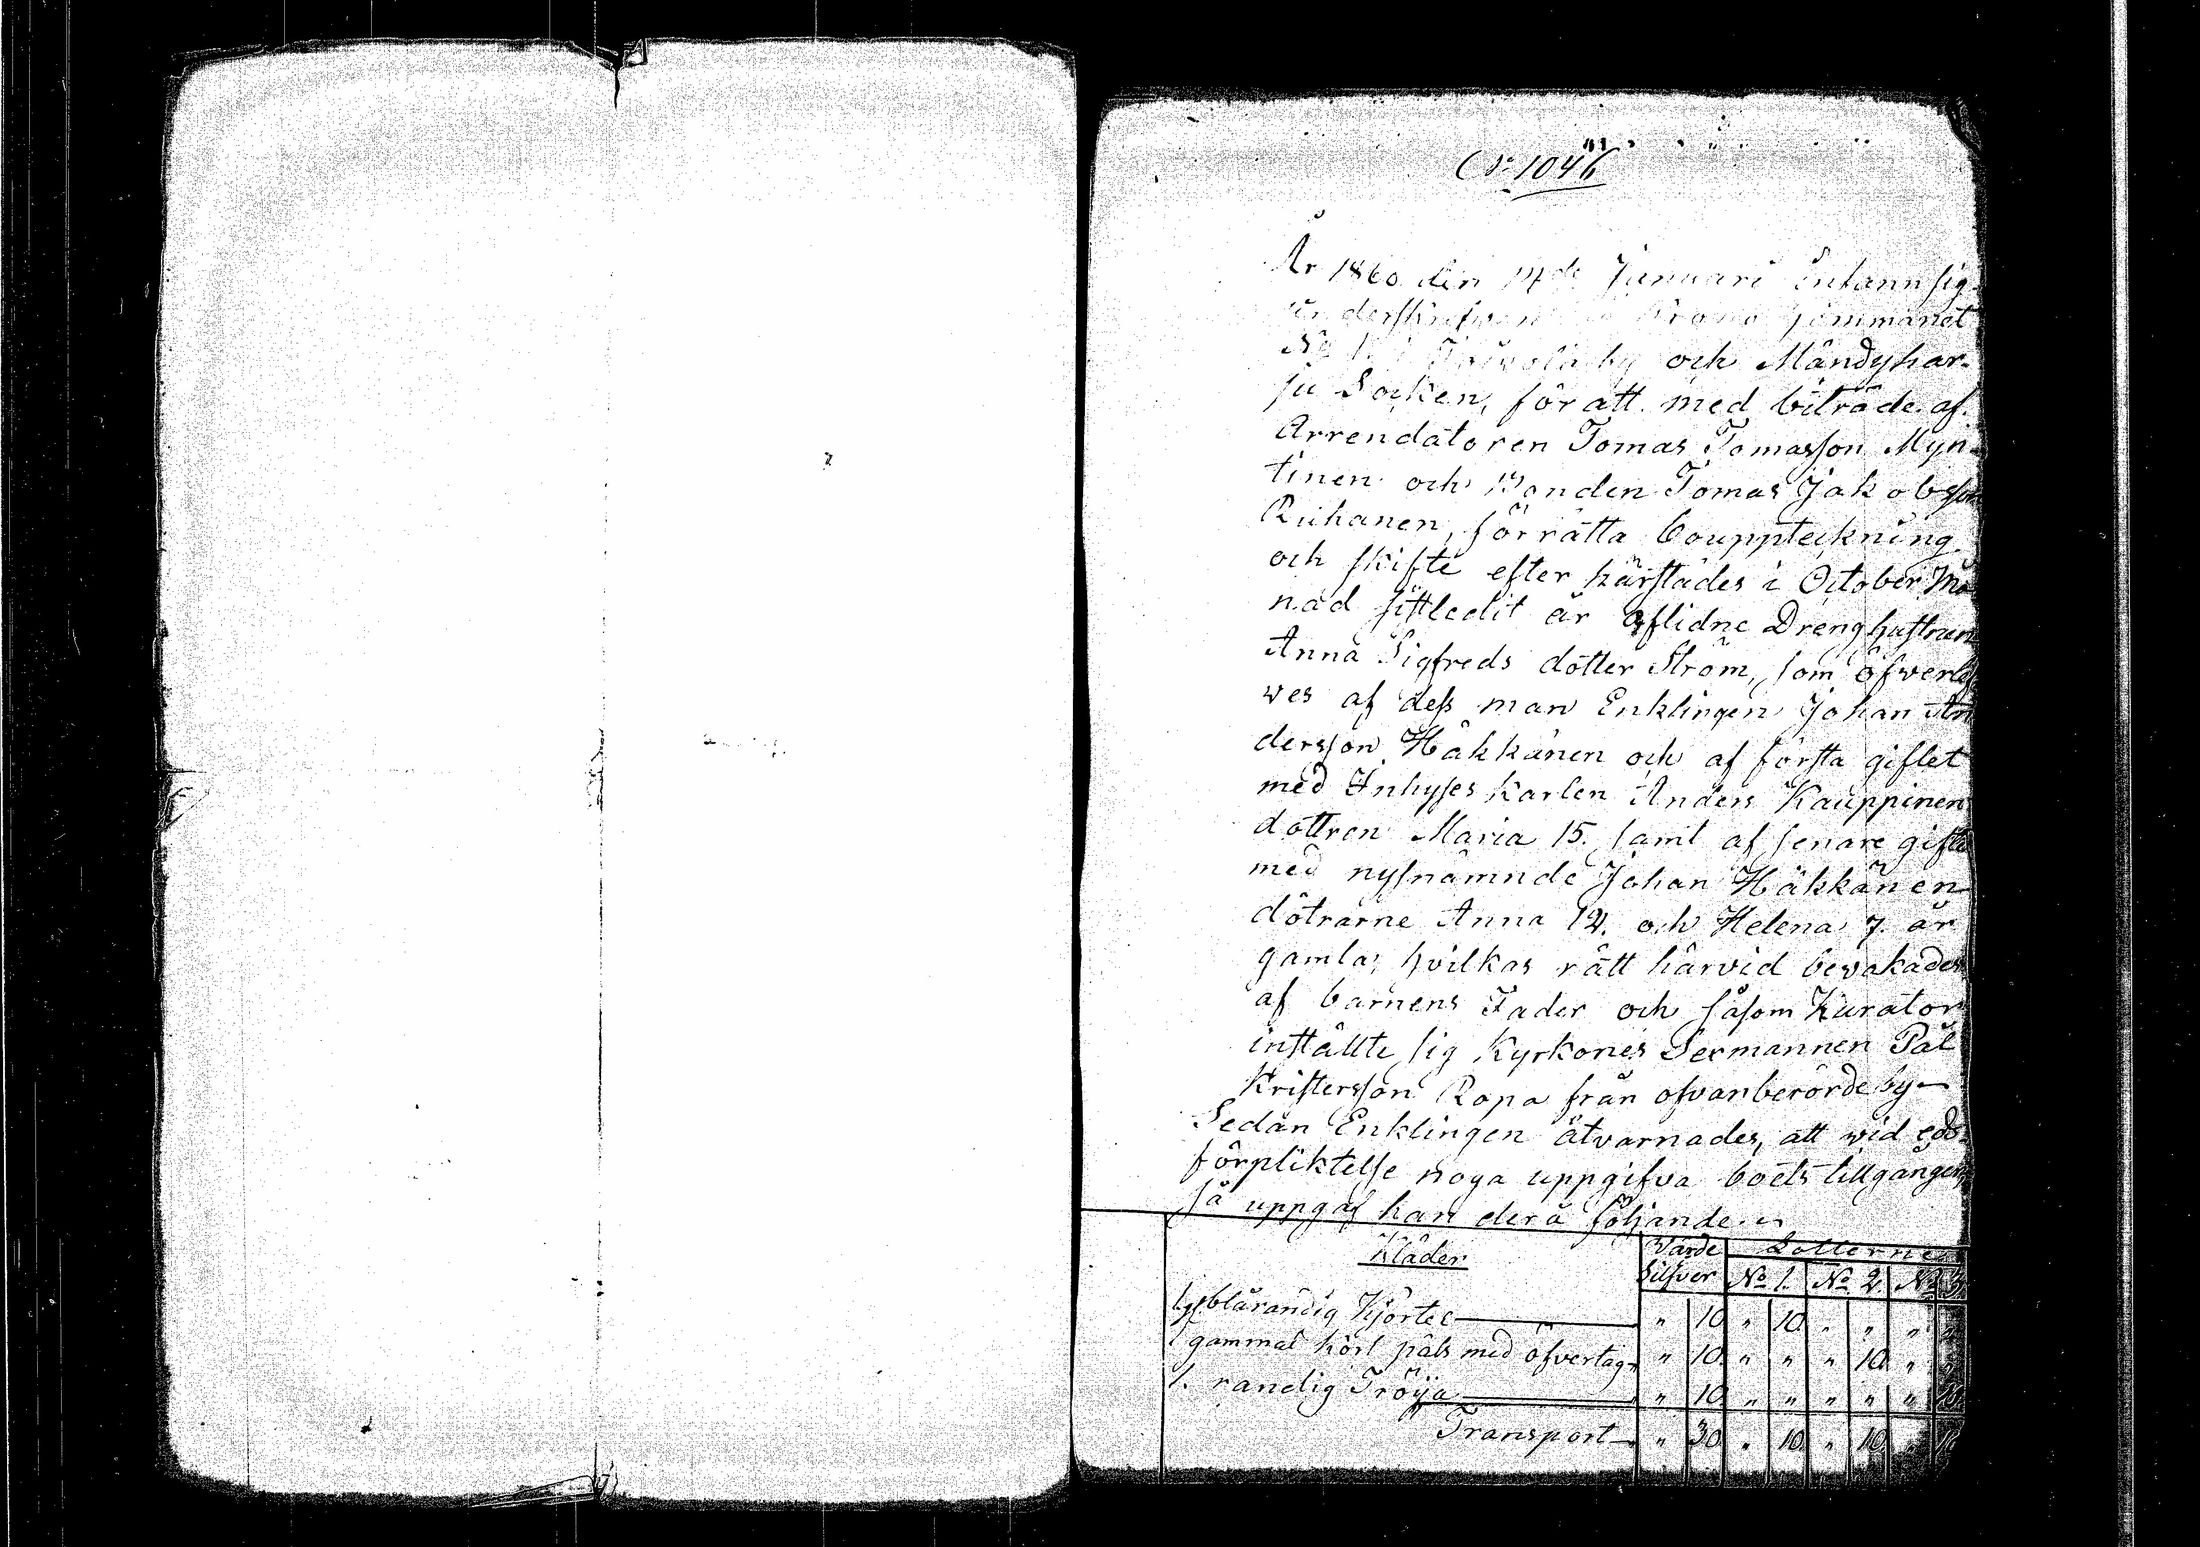 No 1046
År 1860 den 14de Januari infann sig
underskrifven å Krono hemmanet
No 1. i by och Mändyhar-
ju Socken, för att med biträde af
Arrendatoren Tomas Tomasson Myn-
tinen och Bonden Tomas Jakobsson
Ruhanen, förrätta bouppteckning
och skifte efter härstädes i October Må
nad sistledit år aflidne Dränghustrun
Anna Sigfreds dotter Ström, som öfverlef
ves af dess man Enklingen Johan An
dersson Häkkänen och af första giftet
med Inhyses karlen Anders Kauppinen
dottren Maria 15. samt af senare gifte
med nysnämnde Johan Häkkänen
dötrarne Anna 12. och Helena 7. år
gamla, hvilkas rätt härvid bevakades
af barnens Fader och såsom Kurator
inställte sig Kyrkones Sexmannen Pål
Kristersson Ropa från ofvanberörde by—
Sedan Enklingen åtvarnades, att vid eds-
förpliktelse noga uppgifva boets tillgångar,
så uppgaf han derå följande.
Kläder Värde Silfver Lotterne No 1. No 2. No 3.
1 blårandig Kjortel — " 10. " 10. " " " "
1 gammal kort päls med öfvertag " 10. " " " 10. " "
1. randig Tröija — " 10. " " " " " 10.
Transport — " 30 " 10. " 10. " 10.